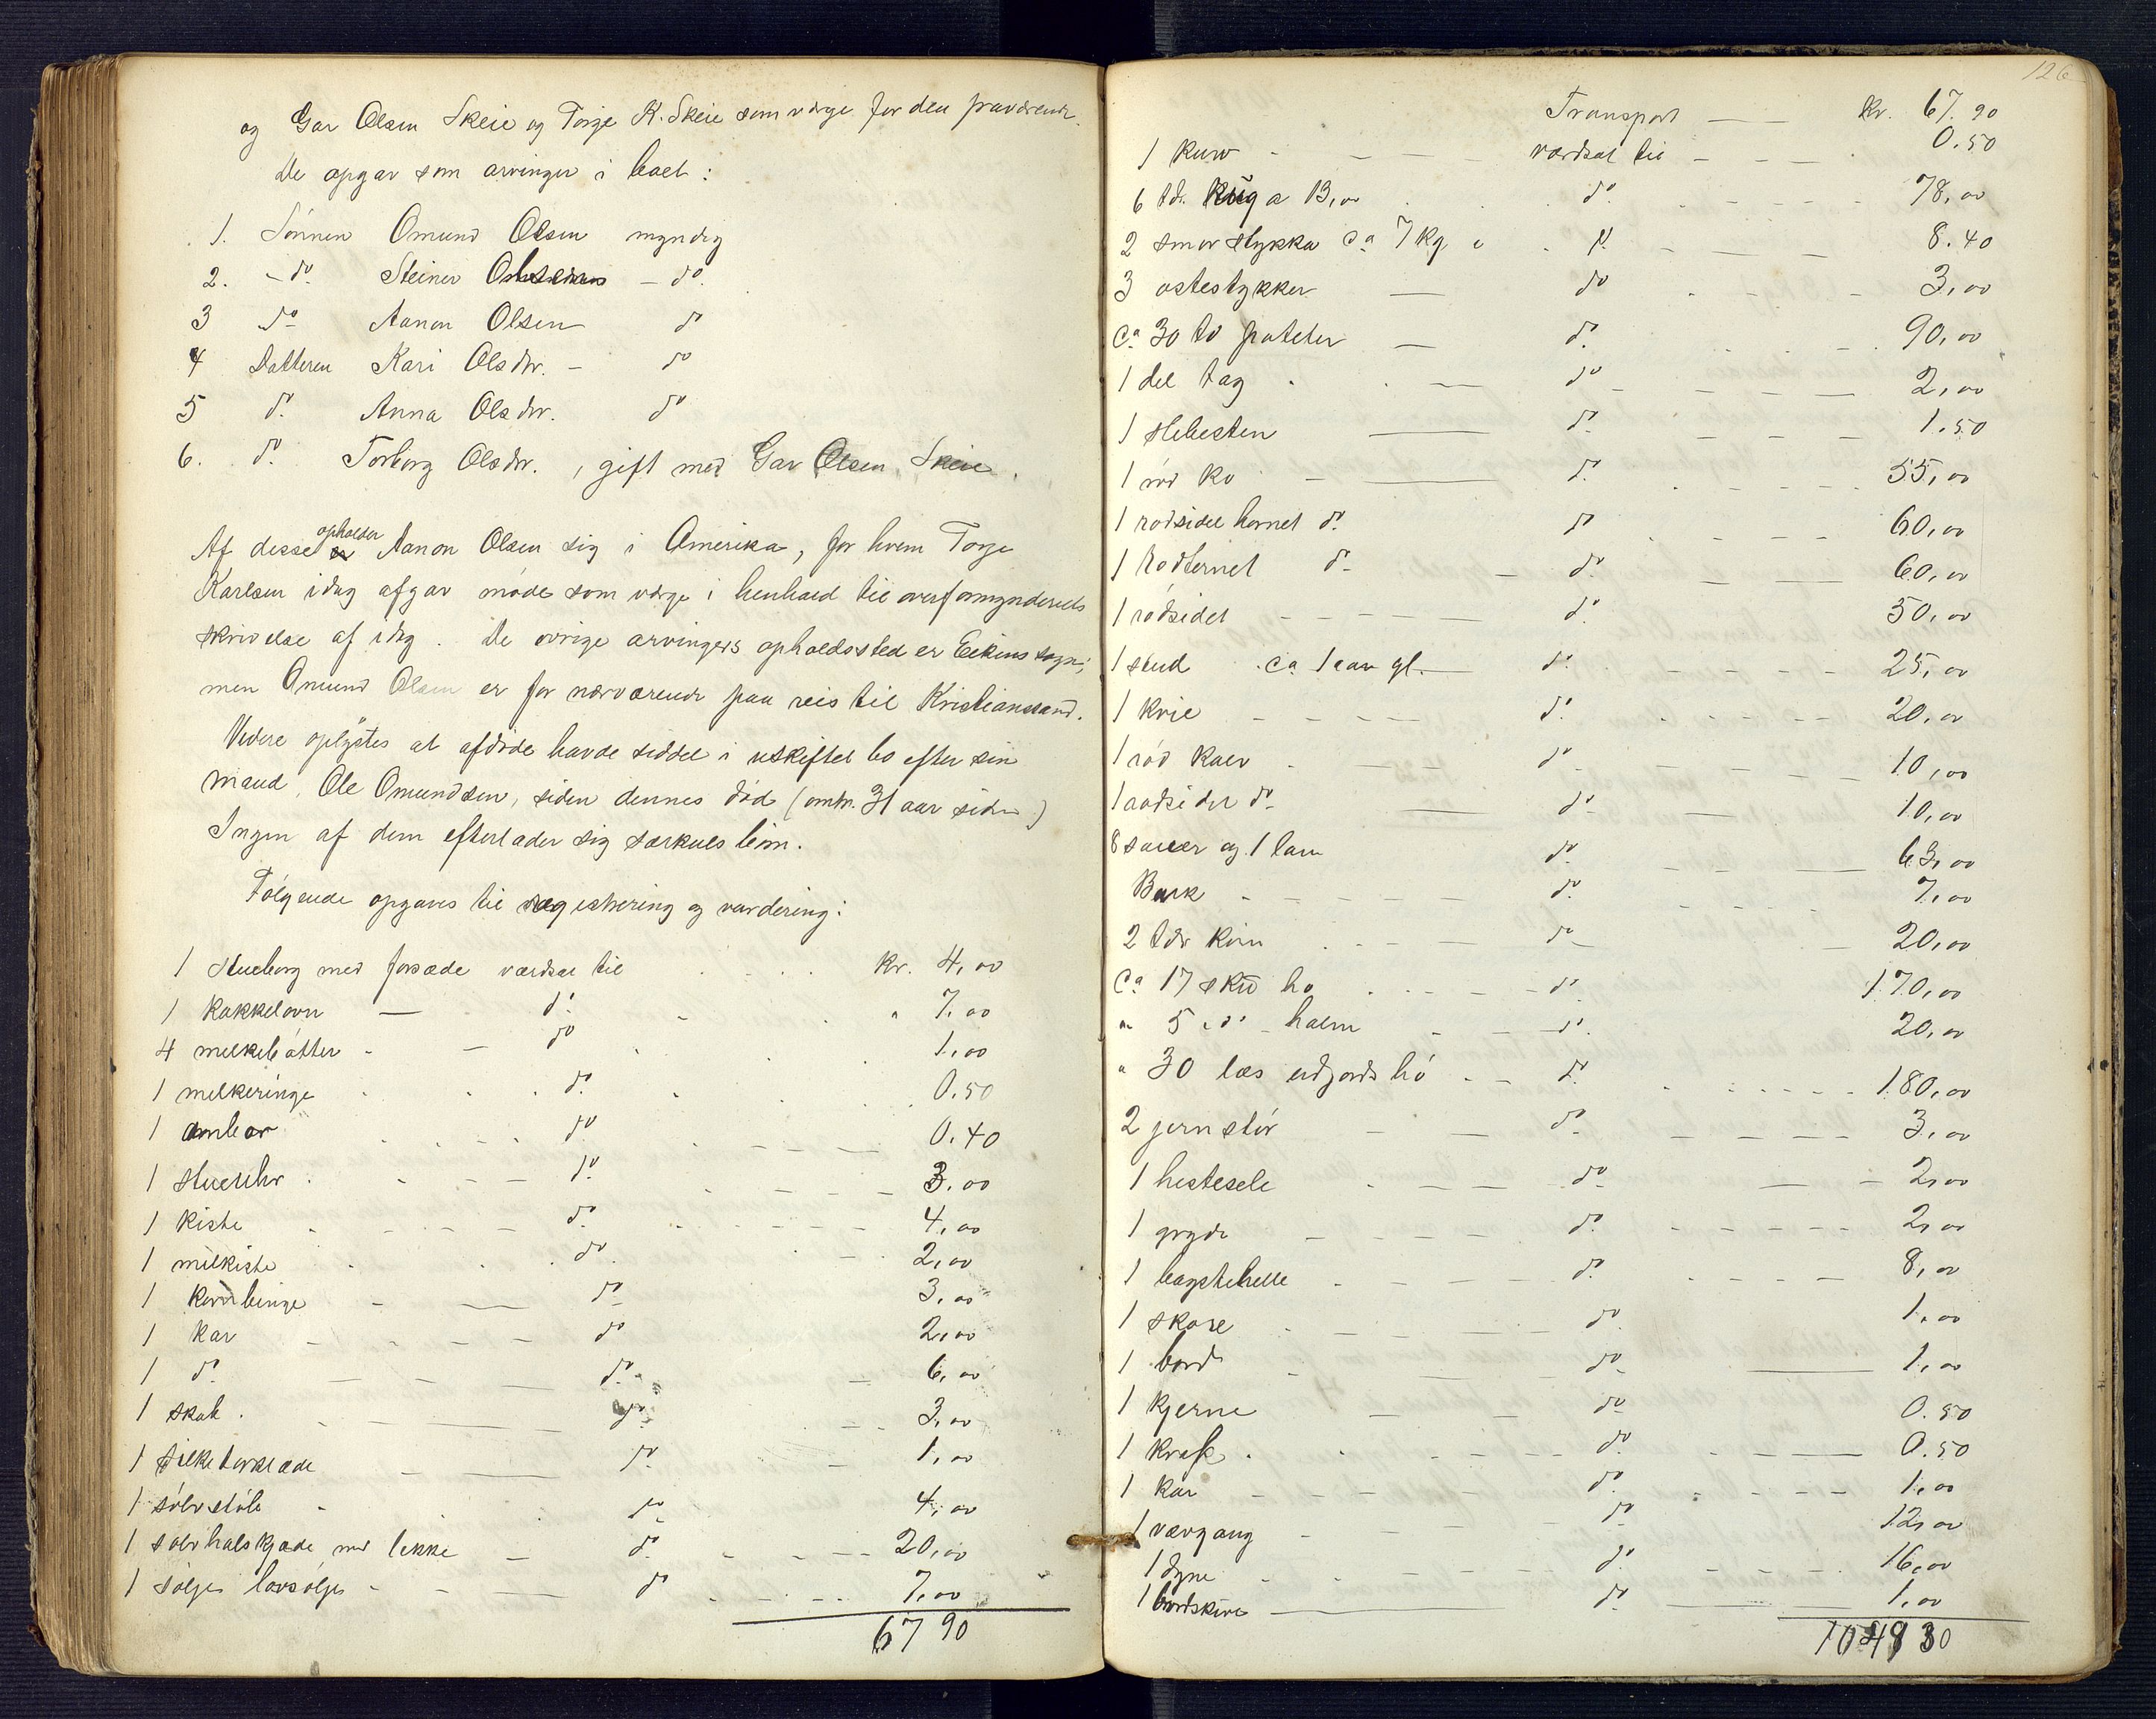 og Gar Olsen Skeie og Torje K. Skeie som værge for den fraværende.
De opgav som arvinger i boet:
1. Sønnen Omund Olsen myndig
2. - do Steiner Olsen - do.
3 do Aanon Olsen do
4 Datteren Kari Olsdtr. - do
5 do. Anna Olsdtr. do
6. do. Torborg Olsdtr., gift med Gar Olsen Skeie.
Af disse opholder Aanon Olsen sig i Amerika, for hvem Torje
Karlsen idag afgav møde som værge i henhold til overformynderiets
skrivelse af idag. De øvrige arvingers opholdssted er Eikens sogn;
men Omund Olsen er for nærværende paa reis til Kristianssand.
Videre oplystes at afdøde havde siddet i uskiftet bo efter sin
mand, Ole Omundsen, siden dennes død (omtr. 31 aar siden)
Ingen af dem efterlader sig særkulsbørn.
Følgende opgaves til registrering og vurdering:
1 stueborg med forsæde værdsat til kr. 4,00
1 kakkelovn — do. " 7,00
4 melkebøtter - — do 1,00
1 melkeringe do. 0.50
1 ambar do 0,40
1 stueuhr do. 3.00
1 kiste do. 4,00
1 melkiste do 2,00
1 kornbinge - — do 3,00
1 kar do 2,00
1 do. do. 6,00
1 skab do 3,00
1 silketørklæde do. 1,00
1 sølvstøle do 4,00
1 sølvhalskjæde med lekke do. 20,00
1 sølje, lavsølje do 7,00
67 90
126
Transport — kr. 67.90
1 kurv værdsat til 0.50
6 tdr. rug a 13,00 do. 78,00
2 smørstykker ca 7 kg do. 8.40
3 ostestykker — do 3,00
ca 30 td poteter — do. 90,00
1 del tag do 2,00
1 slibesten do. 1.50
1 rød ko do. 55,00
1 rødsidet hornet do. do 60,00
1 rødternet do. do. 60,00
1 rødsidet do. 50,00
1 stud ca 1 aar gl. do. 25,00
1 kvie do. 20,00
1 rød kalv do 10,00
1 rødsidet do do 10,00
8 sauer og 1 lam do 63,00
Bark do. 7,00
2 tdr korn do 20,00
ca 17 skø hø do. 170,00
" 5 " do - halm do. 20,00
" 30 læs udjordshø do. 180,00
2 jernstør do. 3,00
1 hestesele do 2,00
1 gryde do. 2,00
1 bagstehelle do. 8,00
1 skare do 1,00
1 bord do 1,00
1 kjerne do 0.50
1 krak do. 0.50
1 kar do. 1,00
1 vævgang do 12,00
1 dyne do. 16,00
1 bordskive do 1,00
1049 30